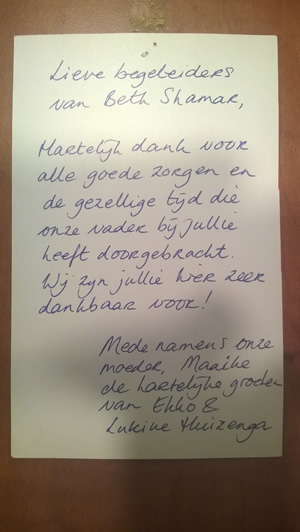 Lieve begeleiders
van Beth Shamar,
Hartelijk dank voor
alle goede zorgen en
de gezellige tijd die
onze vader bij jullie
heeft doorgebracht.
Wij zijn jullie hier zeer
dankbaar voor!
Mede namens onze
moeder, Maaike
de hartelijke groeten
van Ekko &
Lukine Huizenga